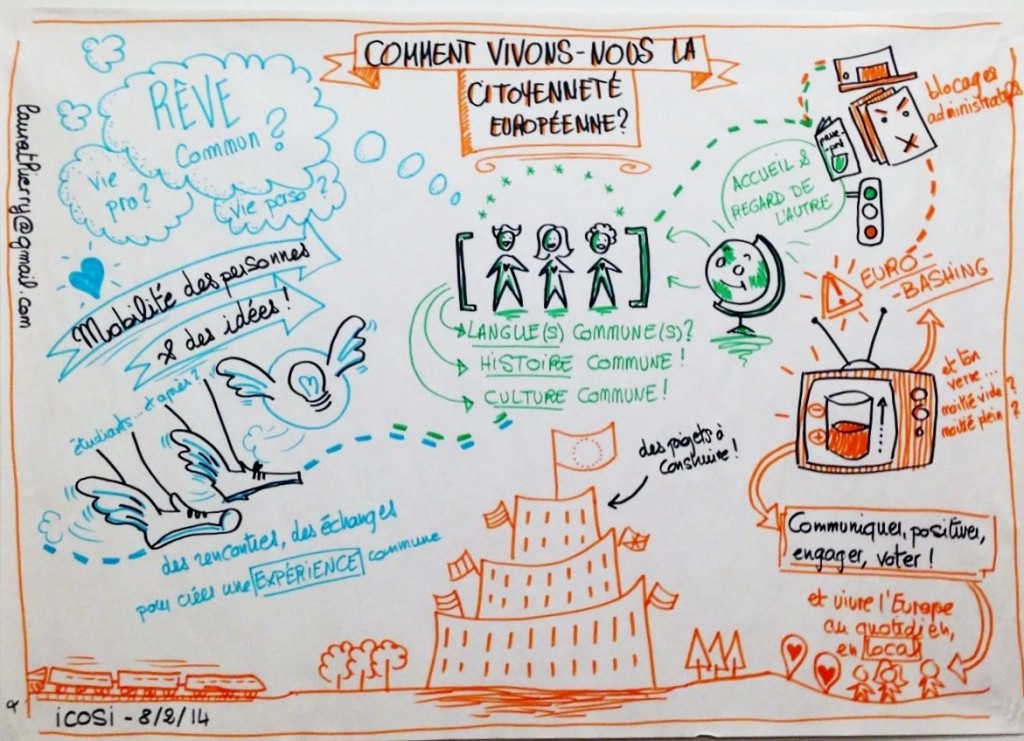 COMMENT VIVONS-NOUS LA
CITOYENNETÉ
EUROPÉENNE?
RÊVE
Commun?
Vie
pro?
Vie perso?
Mobilité des personnes
& des idées!
étudiants... et après?
des rencontres, des échanges
pour créer une EXPÉRIENCE commune
LANGUE(S) COMMUNE(S)?
HISTOIRE COMMUNE!
CULTURE COMMUNE!
ACCUEIL &
REGARD DE
L'AUTRE
blocages
administratifs
EURO-
-BASHING
et ton
verre...
moitié vide?
moitié plein?
des projets à
construire!
Communiquer, positiver,
engager, voter!
et vivre l'Europe
au quotidien,
en local
icosi - 8/2/14